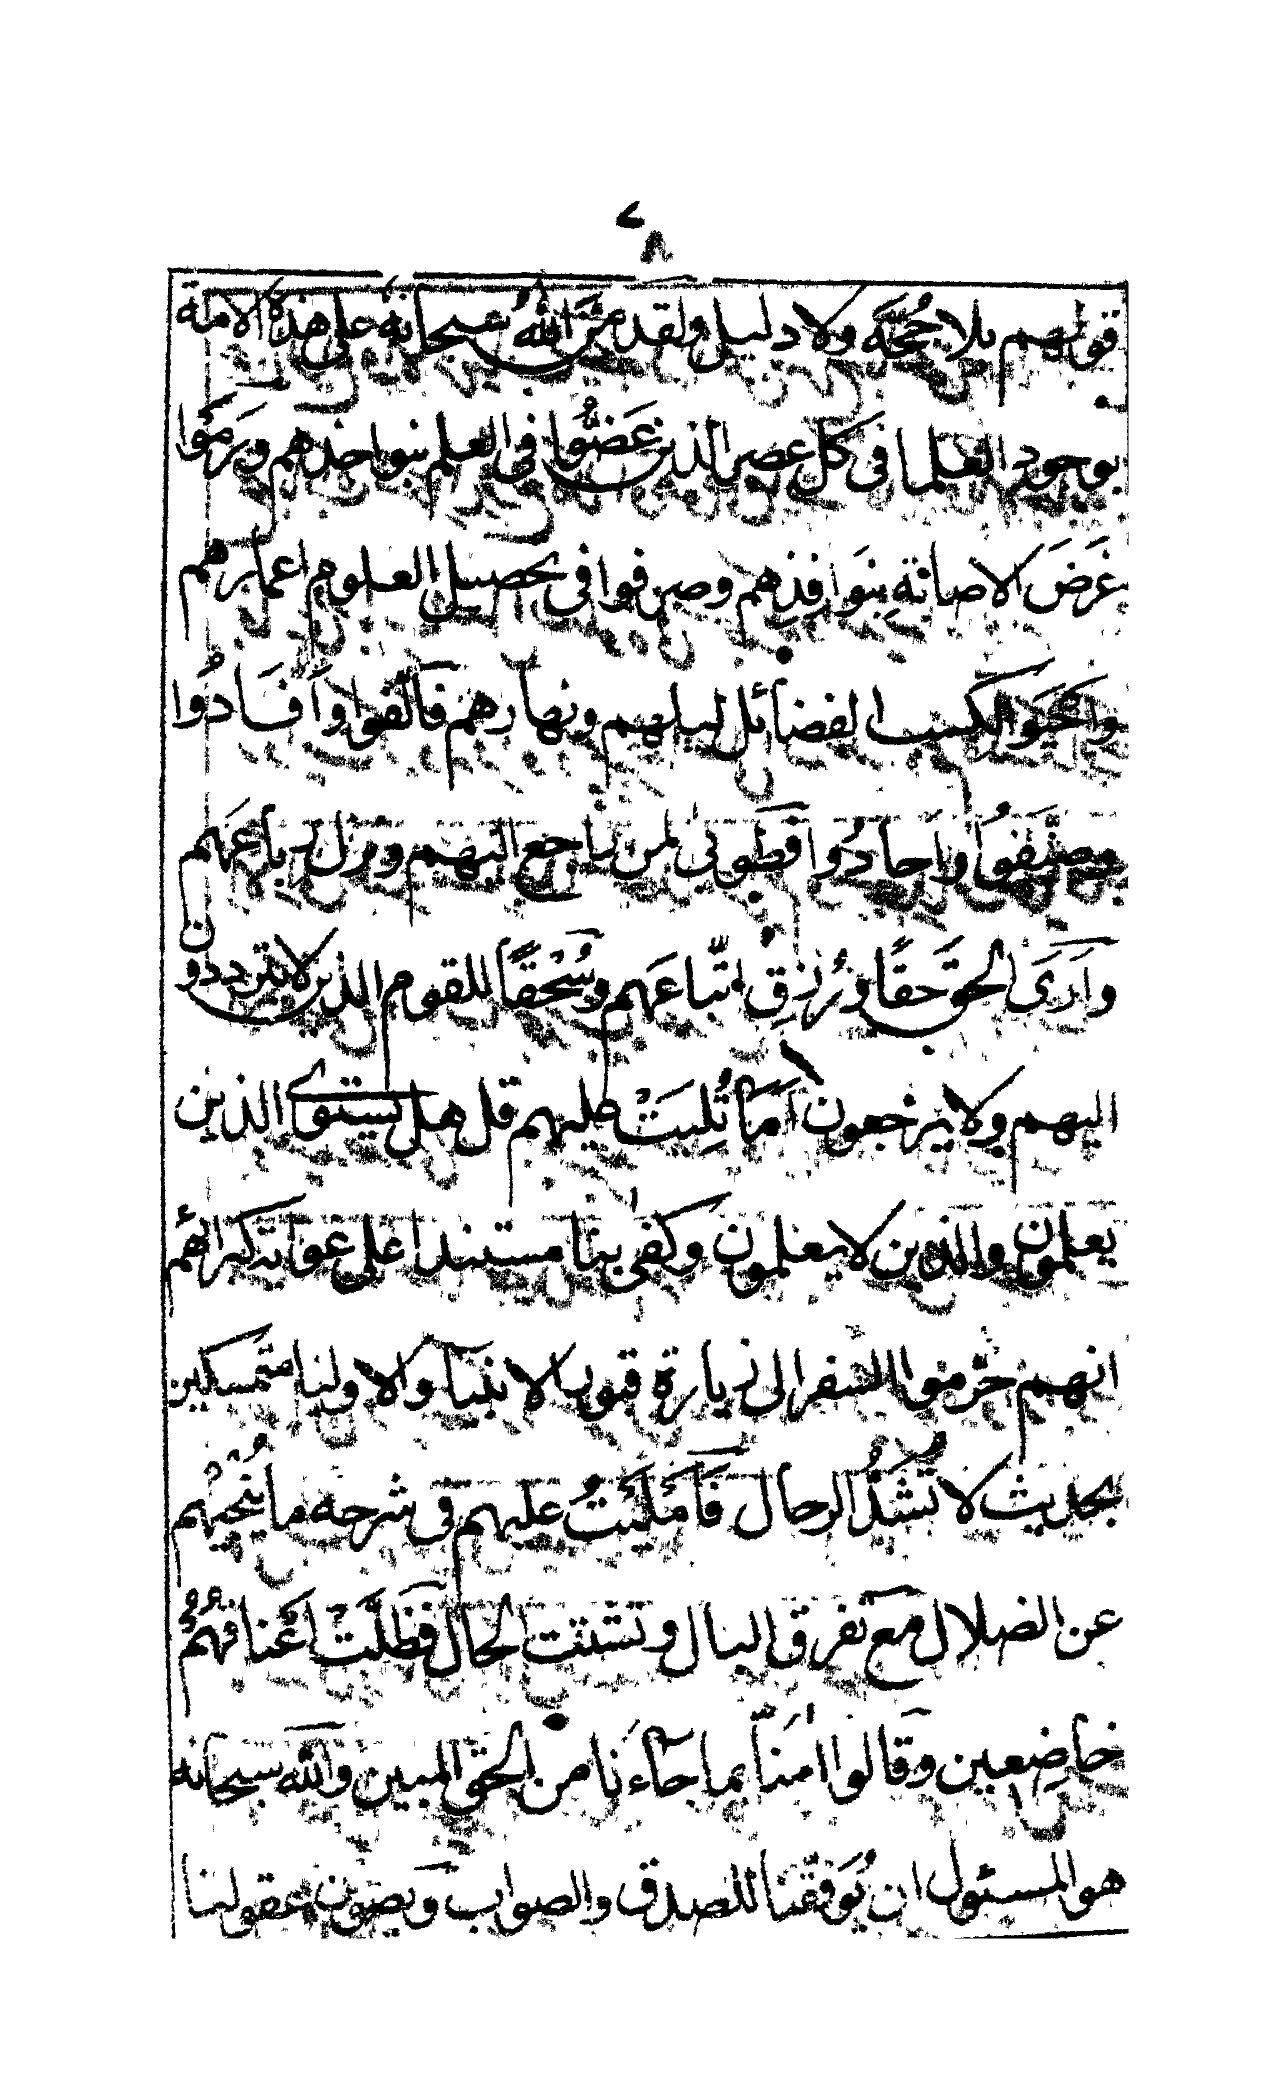 ٨
قولهم بلا حُجَّة ولا دليل ولقد مَنَّ اللهُ سبحانهُ على هذه الامة
بوجود العلما فى كل عصر الذين عَضُّوا فى العلم بنواجذهم ورَمَوا
غَرَضَ الاصابةِ بنَوافِذِهم وصرفوا فى تحصيل العلوم اعمارهم
الكسب الفضائل ليلهم ونهارهم فألفوا وأفَادُوا
وصنَّفُوا وأجادُوا فطوبى لمن راجع اليهم ونزل برباعِهم
وأرَى الحقَّ حقًا ورُزِقَ اتّباعَهم وسُحقًا للقوم الذين لا يترددون
اليهم ولا يرجعون أمَا تُلِيَتْ عليهم قل هل يستوى الذين
يعلمون والذين لا يعلمون وكفى بينا مستندا على غوايةِ كبرائهم
انهم حرّموا السفر الى زيارة قبور الانبياء والاوليا متمسكين
بحديث لا تُشَدُّ الرحال فأمليتُ عليهم فى شرحه ما يُنجِيهم
عن الضلال مع تفرق البال وتشتت الحال فظلَّتْ اعناقهُم
خاضعين وقالوا امنّا بما جاءَنا من الحق المبين والله سبحانه
هو المسئول ان يُوَفِّقنا للصدق والصواب ويصون عقولنا